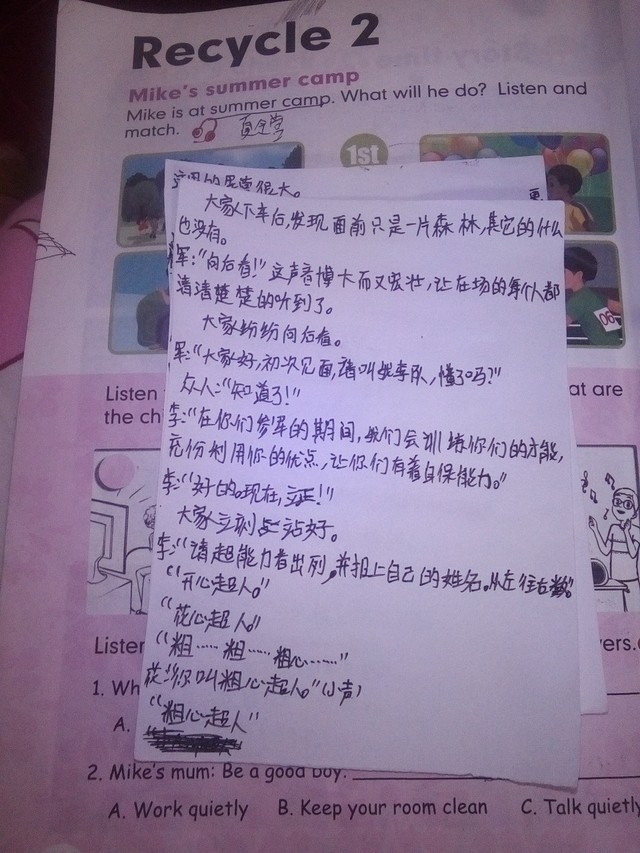 Recycle 2
Mike's summer camp
Mike is at summer camp. What will he do? Listen and
match.
夏令营
1st
很大。
大家下车后,发现面前只是一片森林,其它的什么
也没有。
军:“向后看!”这声音博大而又宏壮,让在场的每个人都
清清楚楚的听到了。
大家纷纷向后看。
军:“大家好,初次见面,请叫我李队,懂了吗?”
众人:“知道了!”
李:“在你们参军的期间,我们会训练你们的才能,
充份利用你的优点,让你们有着自保能力。”
李:“好的。现在,立正!”
大家立刻站好。
李:“请超能力者出列,并报上自己的姓名。从左往右数。”
“开心超人。”
“花心超人。”
“粗……粗……粗心……”
花:“你叫粗心超人。”(小声)
“粗心超人”
Listen
at are
the chi
06
Listen
vers.
1. Wh
A.
2. Mike's mum: Be a good boy.
A. Work quietly B. Keep your room clean C. Talk quietly